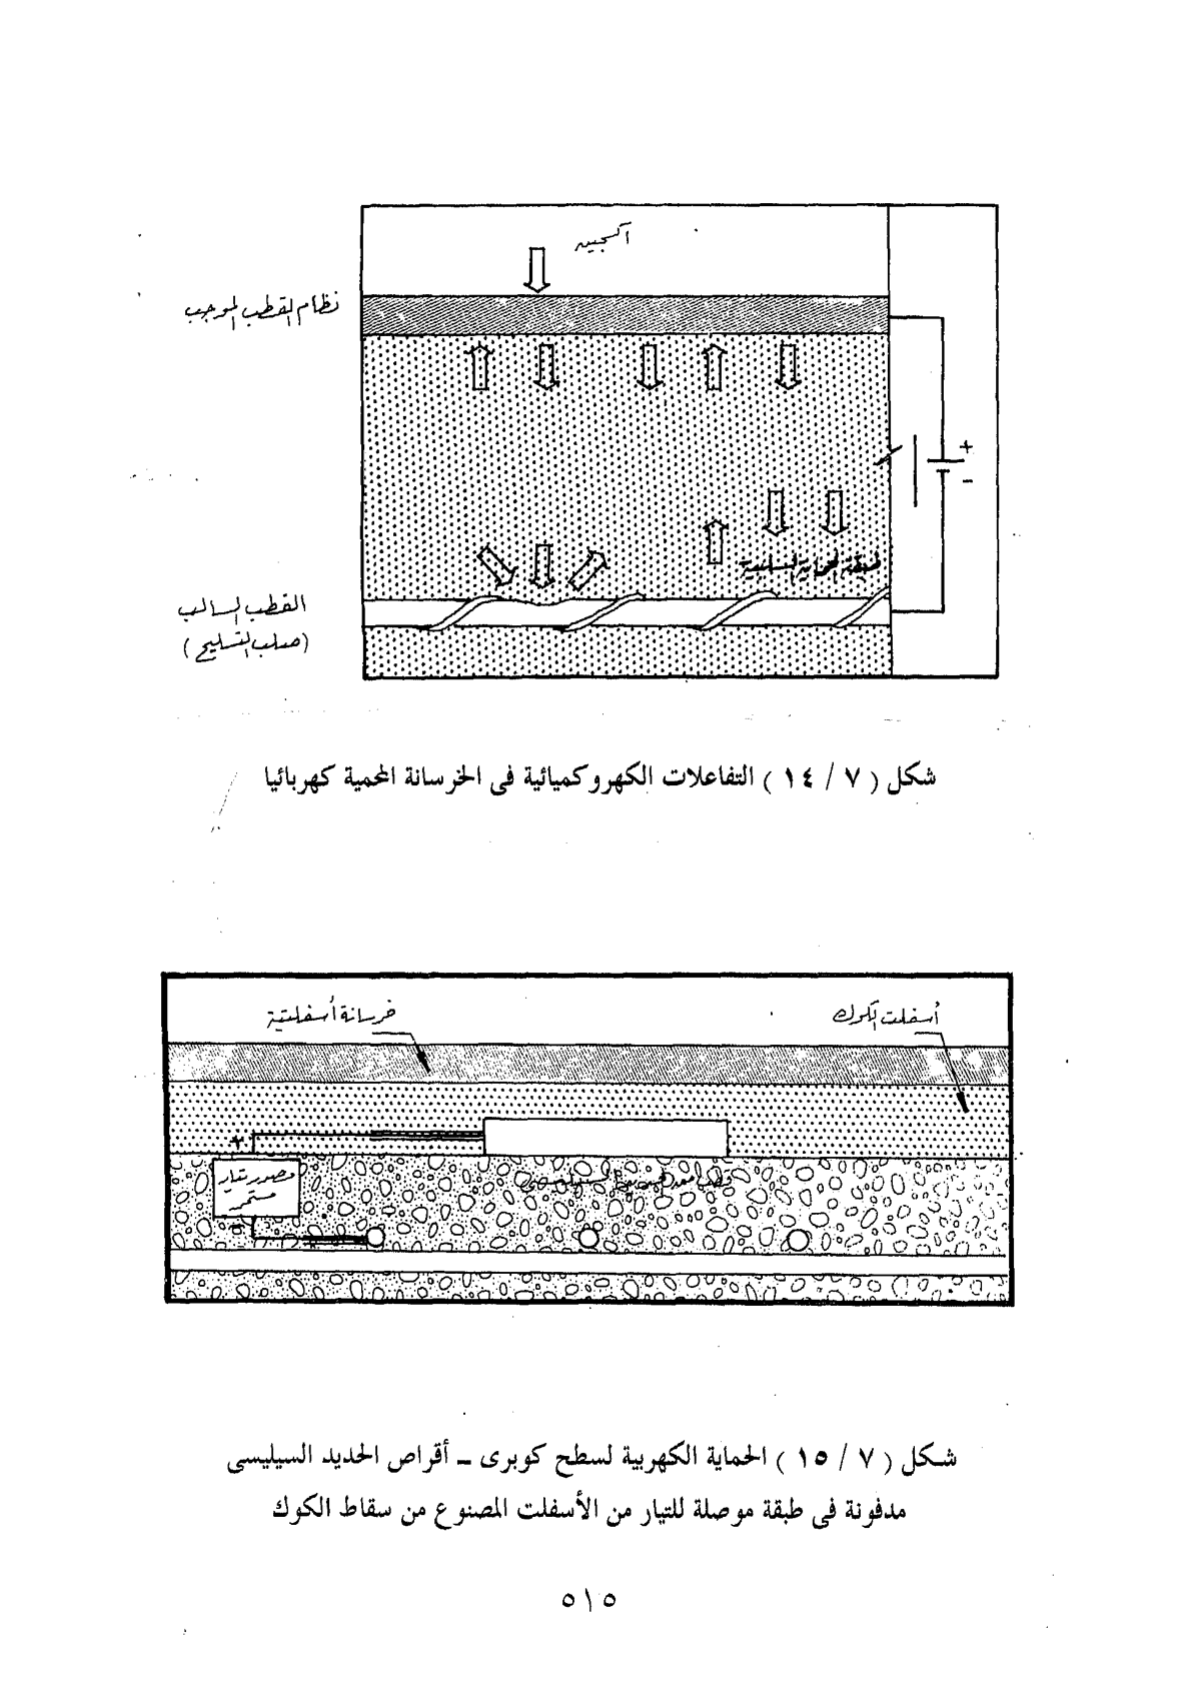 أكسجين
نظام القطب الموجب
+
-
طبقة الحماية السلبية
القطب السالب
(صلب التسليح)
شكل ( ٧ / ١٤ ) التفاعلات الكهروكميائية فى الخرسانة المحمية كهربائيا
أسفلت الكوك
خرسانة أسفلتية
+
مصدر تيار
مستمر
-
شكل ( ٧ / ١٥ ) الحماية الكهربية لسطح كوبرى – أقراص الحديد السيليسى
مدفونة فى طبقة موصلة للتيار من الأسفلت المصنوع من سقاط الكوك
٥١٥